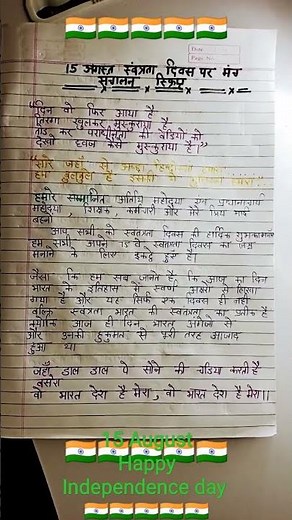 15 अगस्त स्वंत्रता दिवस पर मंच
Date
Page No.
"दिन वो फिर आया है
तिरंगा खुलकर मुस्कुराया है
तोड़ कर पराधीनता की बेडियों को
देखो ध्वज कैसे मुस्कुराया है।"
"सारे जहाँ से अच्छा
हम बुलबुले है इसकी
हमारे सम्मानित अतिथि महोदया एवं प्रधानाचार्य
महोदया, शिक्षक, कर्मचारी और मेरे प्रिय भाई
बहनो
आप सभी को स्वतंत्रता दिवस की हार्दिक शुभकामनाएं
हम सभी अपने वे स्वतंत्रता दिवस का जश्न
मनाने के लिए इकट्ठे हुए है।
जैसा कि हम सब जानते है, कि आज का दिन
भारत के इतिहास में स्वर्ण अक्षरो से लिखा
गया है और यह सिर्फ एक दिवस ही नही
बल्कि स्वतंत्र भारत की स्वतंत्रता का प्रतीक है
क्योंकि आज ही दिन भारत अंग्रेजो से
और उनकी हुकूमत से पूरी तरह आजाद
हुआ था
जहाँ डाल डाल पे सोने की चडिया करती है
बसेरा
वो भारत देश है मेरा, वो भारत देश है मेरा।।
15 August
Happy
Independence day